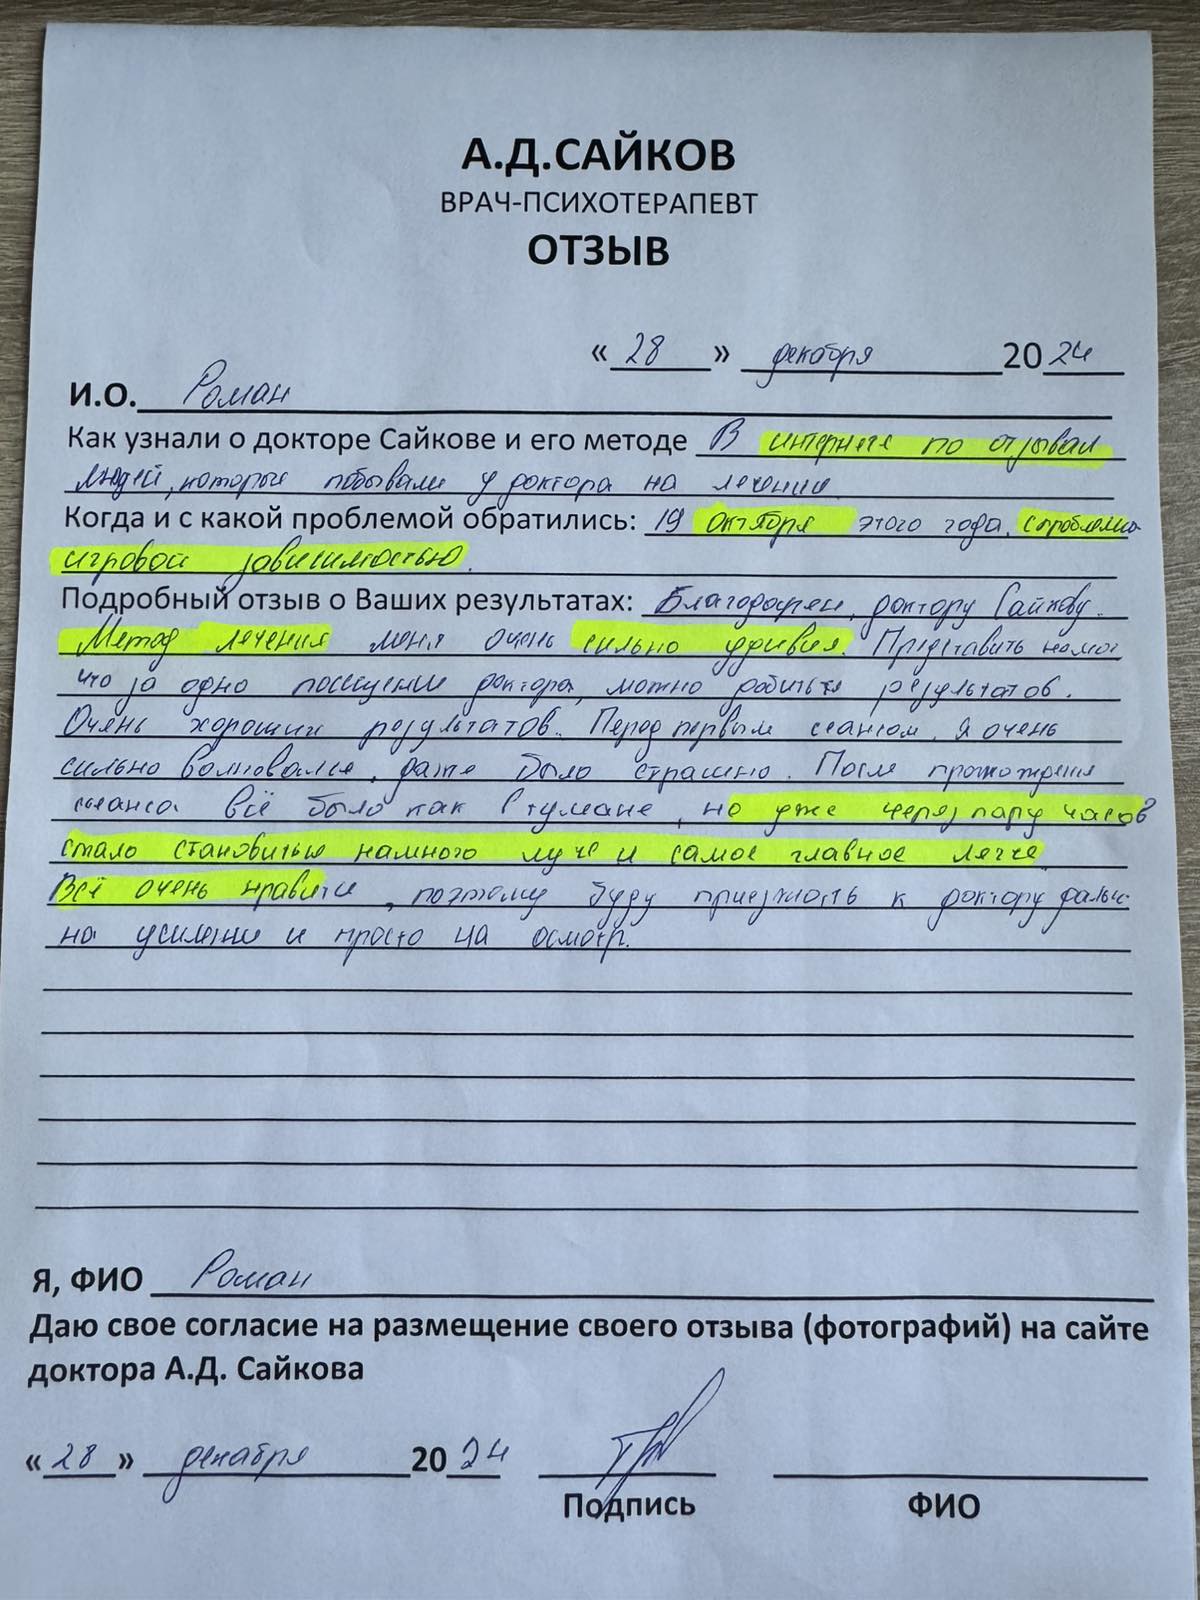 А.Д.САЙКОВ
ВРАЧ-ПСИХОТЕРАПЕВТ
ОТЗЫВ
« 28 » декабря 2024
И.О. Роман
Как узнали о докторе Сайкове и его методе В интернете по отзывам
людей, которые побывали у доктора на лечении
Когда и с какой проблемой обратились: 19 октября этого года, с проблемой
игровой зависимостью.
Подробный отзыв о Ваших результатах: Благодарен, доктору Сайкову.
Метод лечения меня очень сильно удивил. Представить не мог
что за одно посещение доктора, можно добиться результатов.
Очень хороших результатов. Перед первым сеансом, я очень
сильно волновался, даже было страшно. После прохождения
сеанса всё было как в тумане, но уже через пару часов
стало становиться намного луче и самое главное легче
Всё очень нравится, поэтому буду приезжать к доктору
на усиление и просто на осмотр.
Я, ФИО Роман
Даю свое согласие на размещение своего отзыва (фотографий) на сайте
доктора А.Д. Сайкова
« 28 » декабря 2024
Подпись ФИО